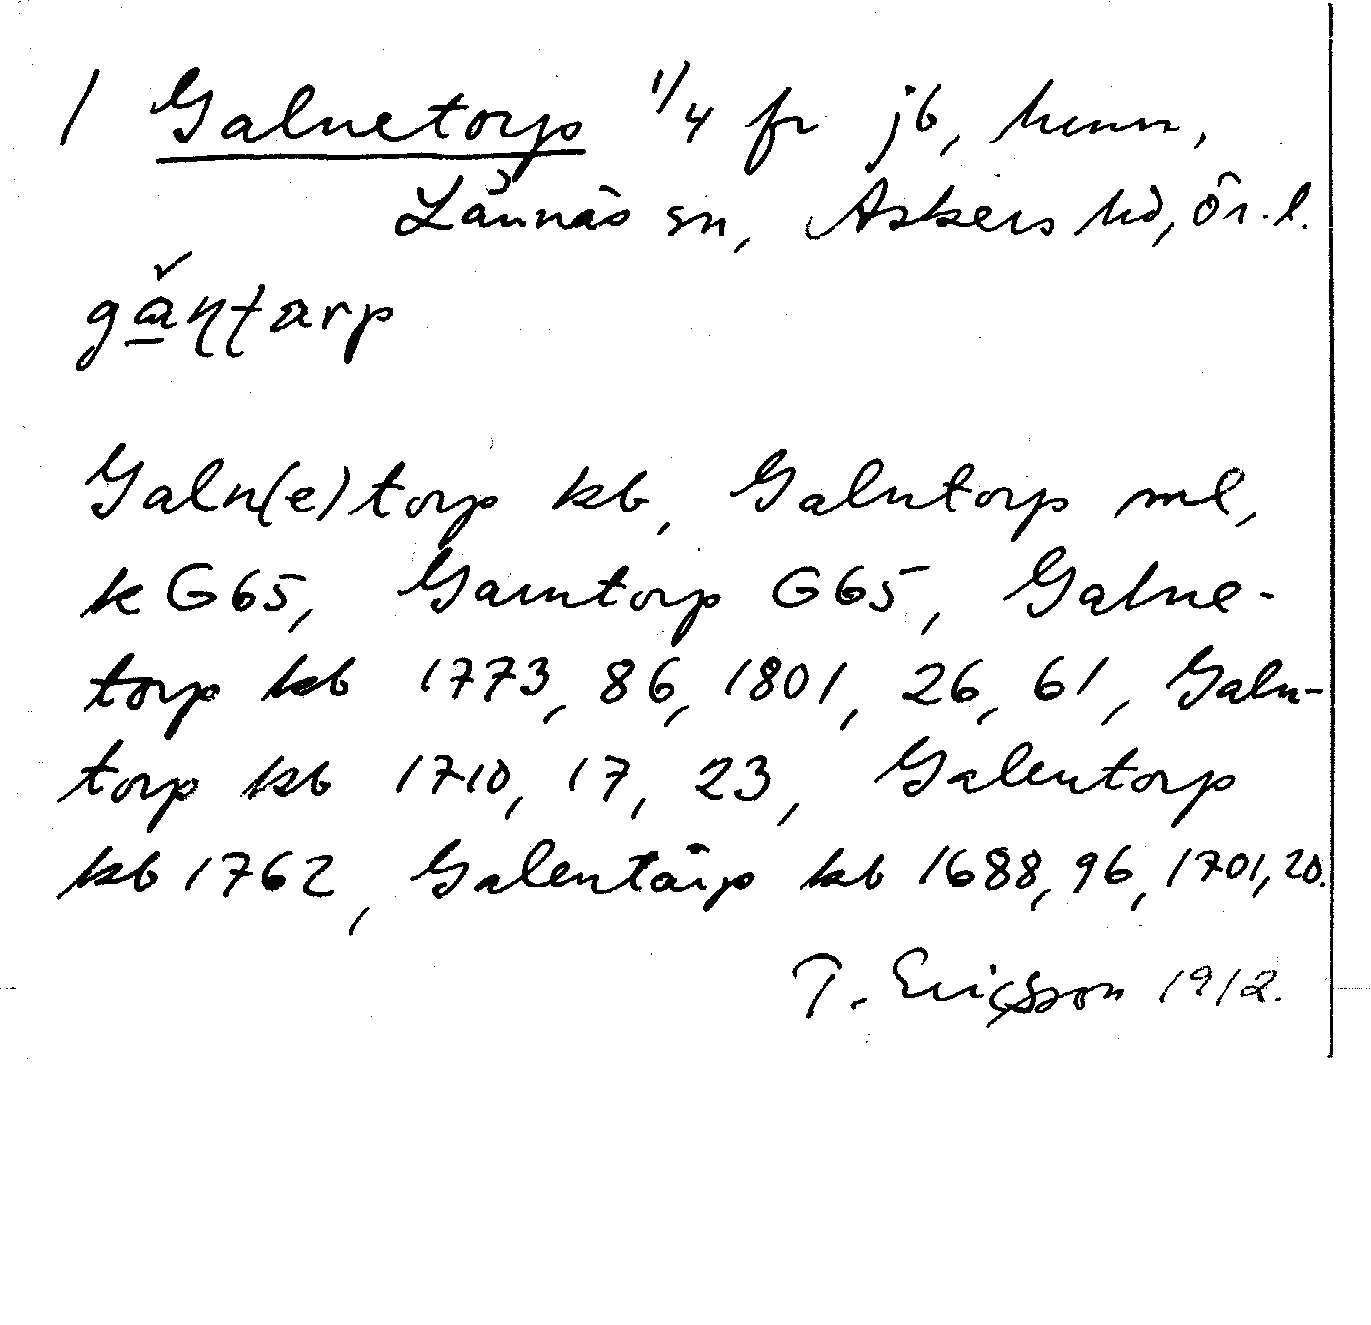 1 Galnetorp 1/4 fr jb, hmn,
Lännäs sn, Askers hd, Ör. l.
gaṇṭarp
Galn(e)torp kb, Galntorp ml,
k G65, Gamtorp G65, Galne-
torp kb 1773, 86, 1801, 26, 61, Galn-
torp kb 1710, 17, 23, Galentorp
kb 1762, Galentårp kb 1688, 96, 1701, 20.
T. Ericsson 1912.